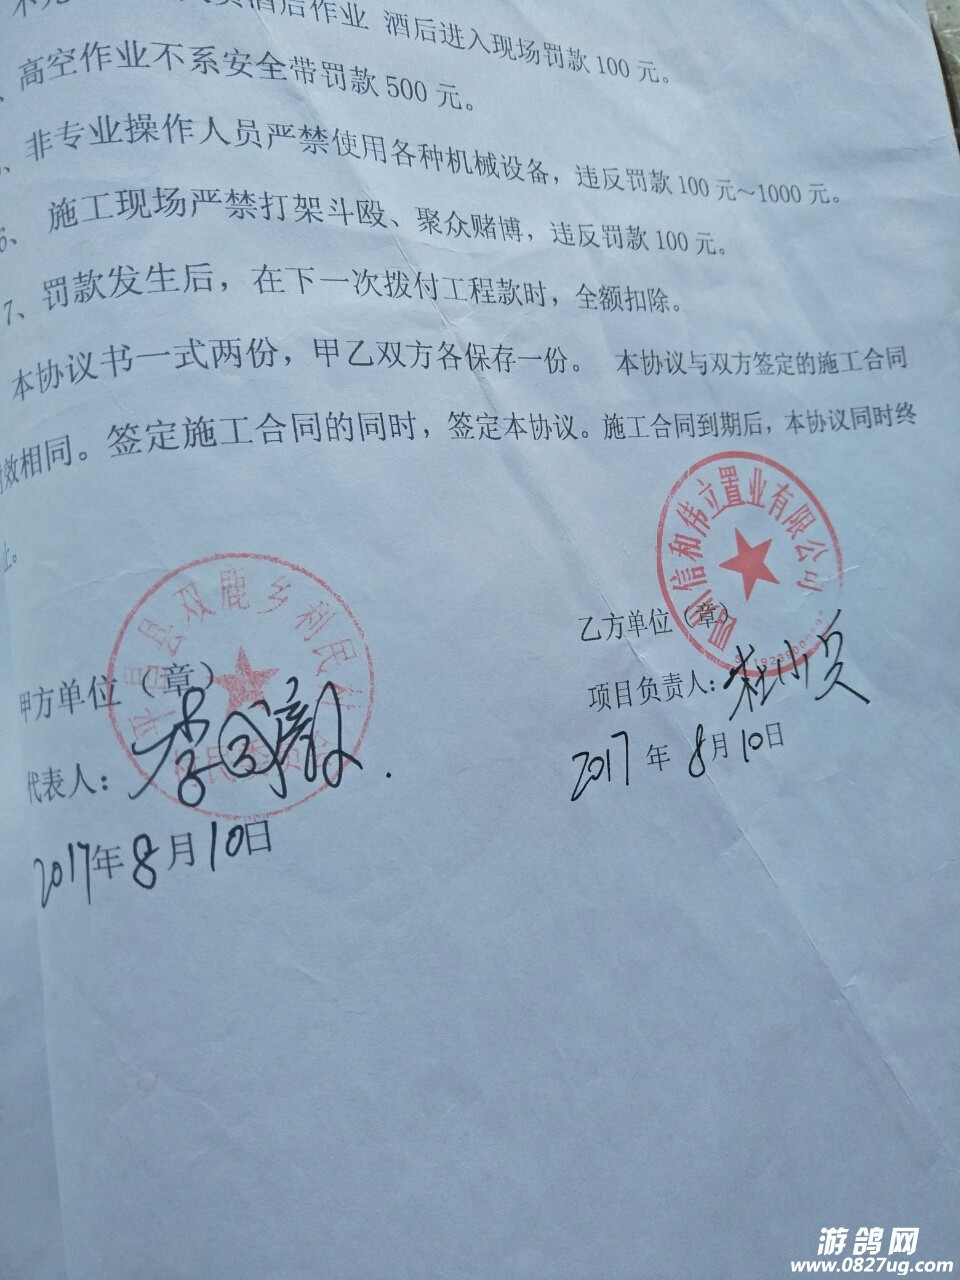 酒后作业 酒后进入现场罚款100元。
高空作业不系安全带罚款500元。
、非专业操作人员严禁使用各种机械设备，违反罚款100元～1000元。
6、 施工现场严禁打架斗殴、聚众赌博，违反罚款100元。
7、罚款发生后，在下一次拨付工程款时，全额扣除。
本协议书一式两份，甲乙双方各保存一份。 本协议与双方签定的施工合同
效相同。签定施工合同的同时，签定本协议。施工合同到期后，本协议同时终
止。
平昌县双鹿乡利民村
甲方单位（章）
代表人：
2017年8月10日
四川信和伟立置业有限公司
乙方单位（章）
项目负责人：杜小
2017年8月10日
游鸽网
www.0827ug.com